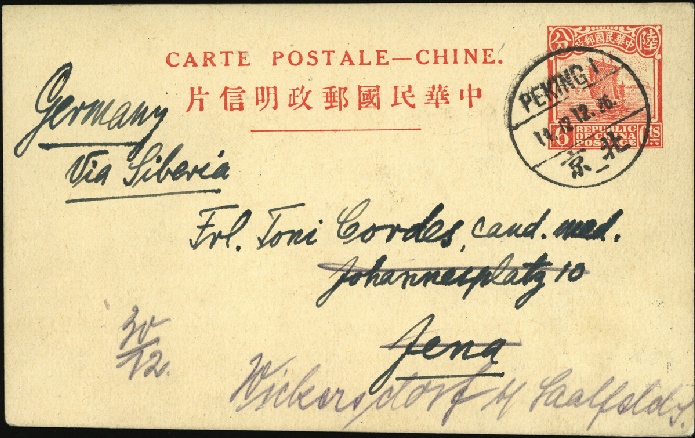 CARTE POSTALE—CHINE.
片信明政郵國民華中
分 中華民國郵政 陸
6 REPUBLIC CTS
OF CHINA
POSTAGE
PEKING 1
北京
Germany
Via Siberia
Frl. Toni Cordes, cand. med.
Johannesplatz 10
Jena
30/12.
Wickersdorf b/ Saalfeld S.